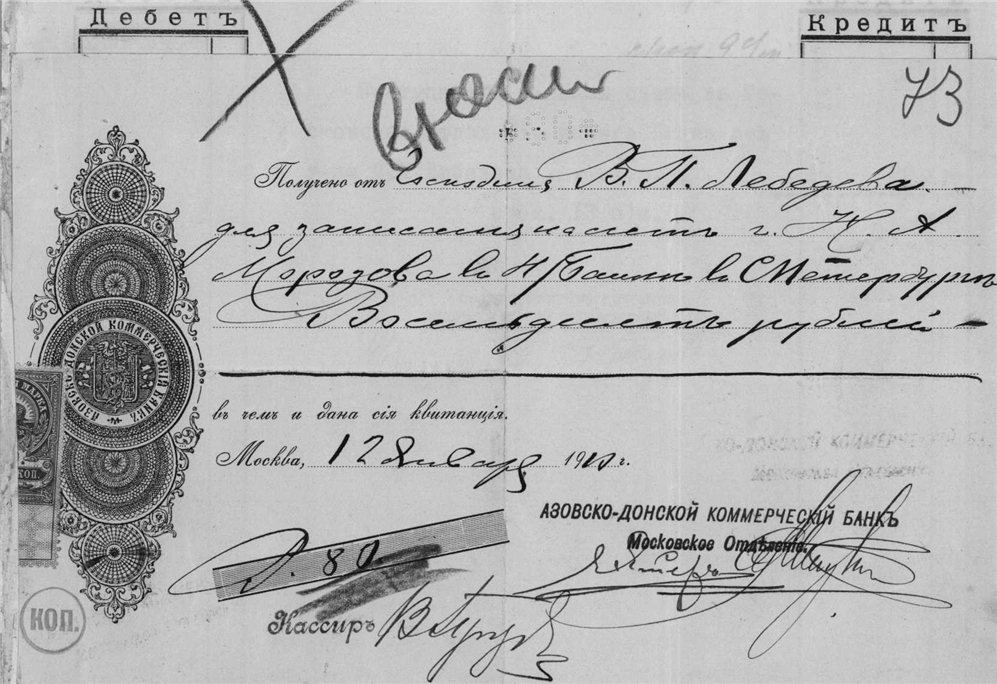 Дебетъ
Кредитъ
73
*80*
Получено отъ Господина В. П. Лебедева
для записания на счетъ г. Н. А.
Морозова въ Н/Банкъ въ С Петербургъ
Восемьдесятъ рублей
АЗОВСКО-ДОНСКОЙ КОММЕРЧЕСКІЙ БАНКЪ
въ чемъ и дана сія квитанція.
Москва, 12 Января 1910 г.
КО-ДОНСКОЙ КОММЕРЧЕСКІЙ БА
АЗОВСКО-ДОНСКОЙ КОММЕРЧЕСКІЙ БАНКЪ
Московское Отдѣленіе.
Р. 80.
КОП.
Кассиръ